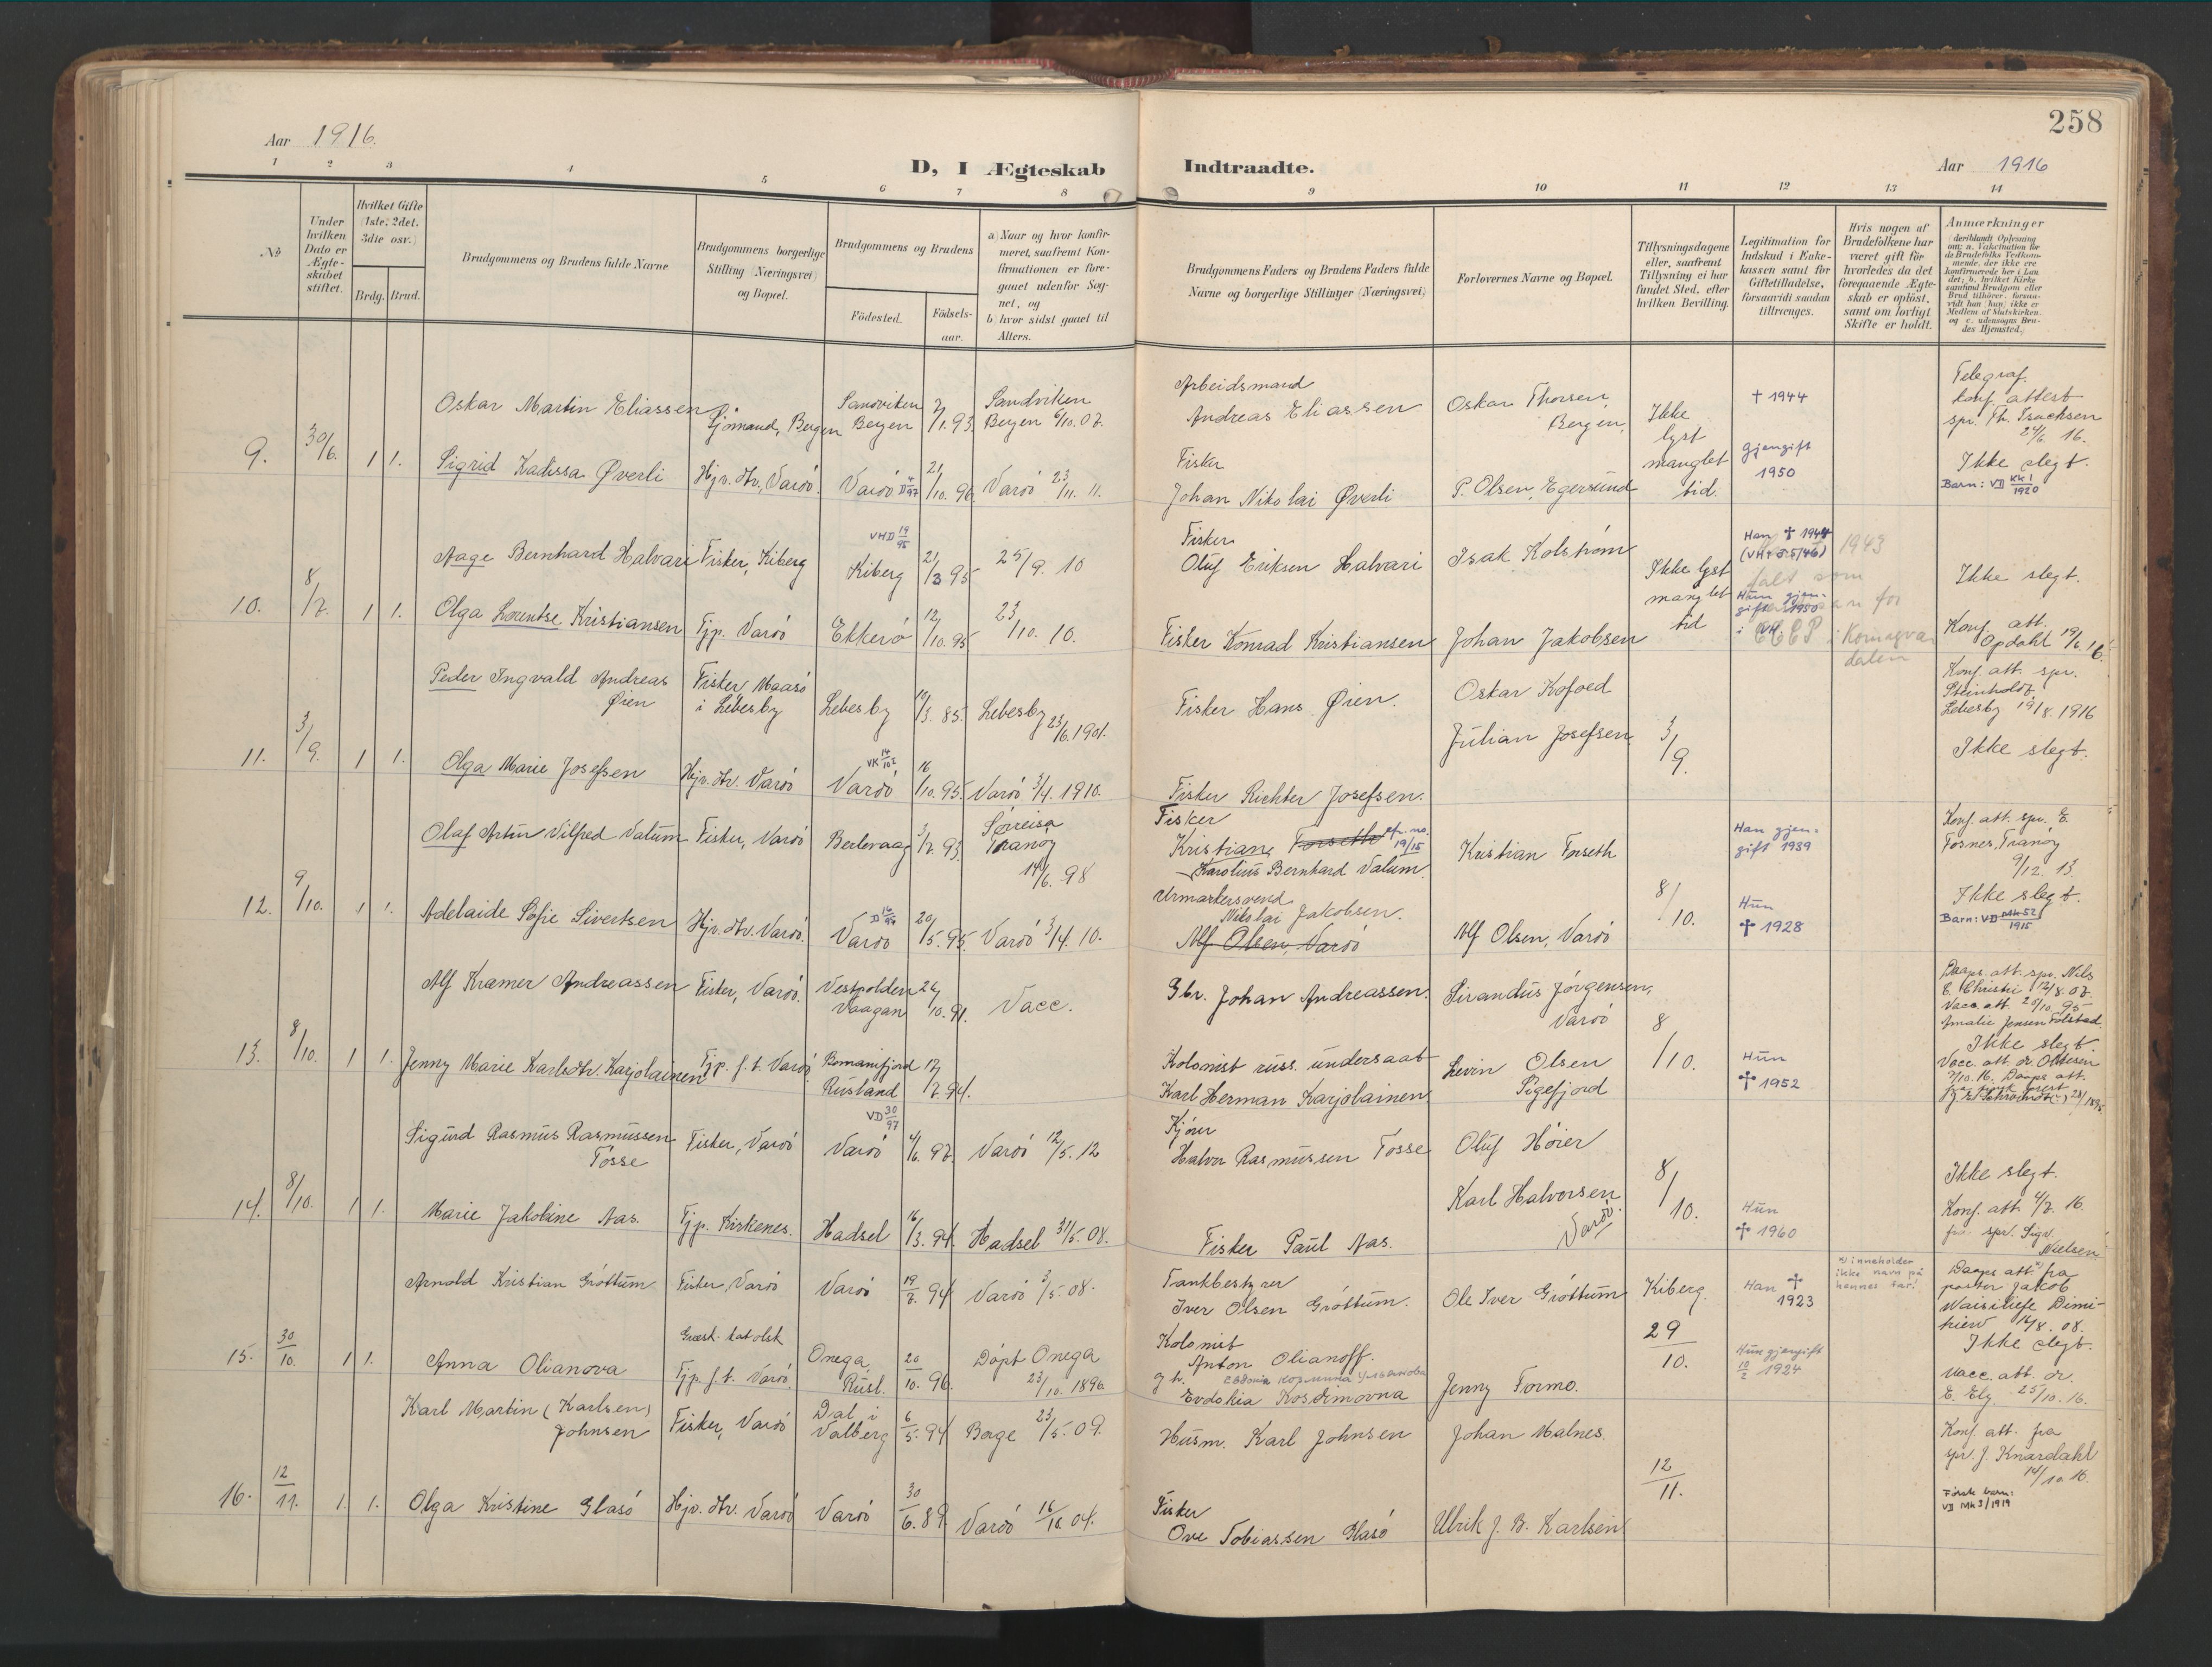 258
Aar 1916.
D, I Ægteskab Indtraadte.
Aar 1916
1 2 3 4 5 6 7 8 9 10 11 12 13 14
No
Under hvilken Dato er Ægteskabet stiftet.
Hvilket Gifte (1ste, 2det, 3die osv.)
Brdg. Brud.
Brudgommens og Brudens fulde Navne
Brudgommens borgerlige Stilling (Næringsvei) og Bopæl.
Brudgommens og Brudens
Födested.
Födselsaar.
a) Naar og hvor konfirmeret, saafremt Konfirmationen er foregaaet udenfor Sognet, og
b) hvor sidst gaaet til Alters.
Brudgommens Faders og Brudens Faders fulde Navne og borgerlige Stillinger (Næringsvei)
Forlovernes Navne og Bopæl.
Tillysningsdagene eller, saafremt Tillysning ei har fundet Sted, efter hvilken Bevilling.
Legitimation for Indskud i Enkekassen samt for Giftetilladelse, forsaavidt saadan tiltrænges.
Hvis nogen af Brudefolkene har været gift før hvorledes da det foregaaende Ægteskab er oplöst, samt om lovligt Skifte er holdt.
Anmærkninger (deriblandt Oplysning om: a. Vakcination for da Brudefolks Vedkommende, der ikke ere konfirmerede her i Landet; b. hvilket Kirkesamfund Brudgom eller Brud tilhörer, forsaavidt han (hun) ikke er Medlem af Statskirken, og c. udensogns Brudes Hjemsted.)
9. 30/6. 1 1.
Oskar Martin Eliassen Sjömand, Bergen Sandviken Bergen 7/1. 93. Sandviken Bergen 6/10. 07.
Arbeidsmand Andreas Eliassen Oskar Thorsen, Bergen, Ikke lyst manglet tid. † 1944
Telegraf. konf. attest spr. Th. Isachsen 24/6. 16.
Sigrid Kadissa Øverli Hjv. dtr., Varöö. Varöö D 4/97 21/10. 96. Varöö 23/11. 11.
Fisker Johan Nikolai Øverli P. Olsen, Egersund gjengift 1950
Ikke slegt.
Barn: VD KK1/1920
10. 8/7. 1 1.
Aage Bernhard Halvari Fisker, Kiberg VHD 19/95 Kiberg 21/3 95 25/9. 10
Fisker Oluf Eriksen Halvari Isak Kolström Ikke lyst manglet tid
Han † 1944 (VHt S. 5/46) 1943
falt som partisan for CCCP i Komagvær dalen
Ikke slegt.
Olga Lorentse Kristiansen Tjp. Varöö Ekkerö 12/10. 95 23/10. 10.
Fisker Konrad Kristiansen Johan Jakobsen
Hun gjengift 1950 i VH
Konf. att. Opdahl 19/6. 16.
11. 3/9. 1 1.
Peder Ingvald Andreas Øien Fisker, Maasö i Lebesby Lebesby 10/3. 85. Lebesby 23/6. 1901.
Fisker Hans Øien. Oskar Kofoed
Julian Josefsen 3/9.
Konf. att. spr. Steinholdt, Lebesby 19/8. 1916
Ikke slegt.
Olga Marie Josefsen Hjv. dtr. Varöö VK 14/102 Varöö 16/10. 95. Varöö 3/4. 1910.
Fisker Richter Josefsen.
12. 9/10. 1 1.
Olaf Artur Vilfred Valum Fisker, Varöö Berlevaag 3/7. 93. Sörreisa Tranöy 14/6. 98
Fisker Kristian Forseth cfr. no. 19/15
Karolius Bernhard Valum. Kristian Forseth 8/10.
Han gjengift 1939
Konf. att. spr. E. Fosnes, Tranöy 9/12. 13.
Adelaide Sofie Sivertsen Hjv. dtr. Varöö. D 16/96 Varöö 20/5. 95. Varöö 3/4. 10.
Urmakersvend Nikolai Jakobsen.
Alf Olsen, Varöö Alf Olsen, Varöö
Hun † 1928
Ikke slegt.
Barn: VD Mk 52/1915
13. 8/10. 1 1.
Alf Kramer Andreassen Fisker, Varöö. Vestpolden Vaagan 26/10. 91. Vacc.
Gbr. Johan Andreassen. Sirandus Jörgensen, Varöö 8/10.
Daaps att. spr. Nils E. Christie 12/8. 07.
Vacc. att. 20/10. 95
Amalie Jensen Folstad.
Ikke slegt.
Jenny Marie Karlsdtr. Karjolainen Tjp. f. t. Varöö Romanifjord Rusland 17/7. 94.
Kolonist russ. undersaat Karl Herman Karjolainen Levin Olsen Sigefjord
Hun † 1952
Vacc. att. dr. Oltesen 7/10. 16. Daaps att.
14. 8/10. 1 1.
Sigurd Rasmus Rasmussen Tösse Fisker, Varöö VD 30/97 Varöö 4/6. 97. Varöö 12/5. 12
Kjörer Halvor Rasmussen Tösse Oluf Höier
Karl Halvorsen Varöö. 8/10.
Ikke slegt.
Marie Jakobine Aas. Tjp. Kirkenes. Hadsel 16/3. 94. Hadsel 31/5. 08.
Fisker Paul Aas.
Hun † 1960
Konf. att. 4/7. 16. fra spr. Sigv. Nielsen
15. 30/10. 1 1.
Arnold Kristian Gröttum Fisker, Varöö Varöö 19/8. 94 Varöö 3/5. 08.
Tankbestyrer Iver Olsen Gröttum. Ole Iver Gröttum Kiberg. 29/10.
Han † 1923
*) inneholder ikke navn på hennes far!
Daaps att.*) fra pastor Jakob Waisiliefe Dimitriew 16/8. 08.
Ikke slegt.
Anna Olianova Græsk. katolsk Tjp. f. t. Varöö. Onega, Rusl. 20/10. 96. Döpt Onega 23/10. 1896
Kolonist Anton Olianoff.
g. h. Evdokia Kosdimovna Jenny Tormo.
Hun gjengift 10/2 1924
Vacc. att. dr. E. Ely 25/10. 16.
16. 12/11. 1. 1.
Karl Martin (Karlsen) Johnsen Fisker, Varöö Dal i Valberg 6/5. 94 Borge 23/5. 09.
Husm. Karl Johnsen Johan Malnes. 12/11.
Konf. att. fra spr. J. Knardahl 14/10. 16.
Olga Kristine Glasö Hjv. dtr. Varöö Varöö 30/6. 89. Varöö 16/10. 04.
Fisker Ove Tobiassen Glasö Ulrik J. B. Karlsen
Første barn: VD Mk 3/1919